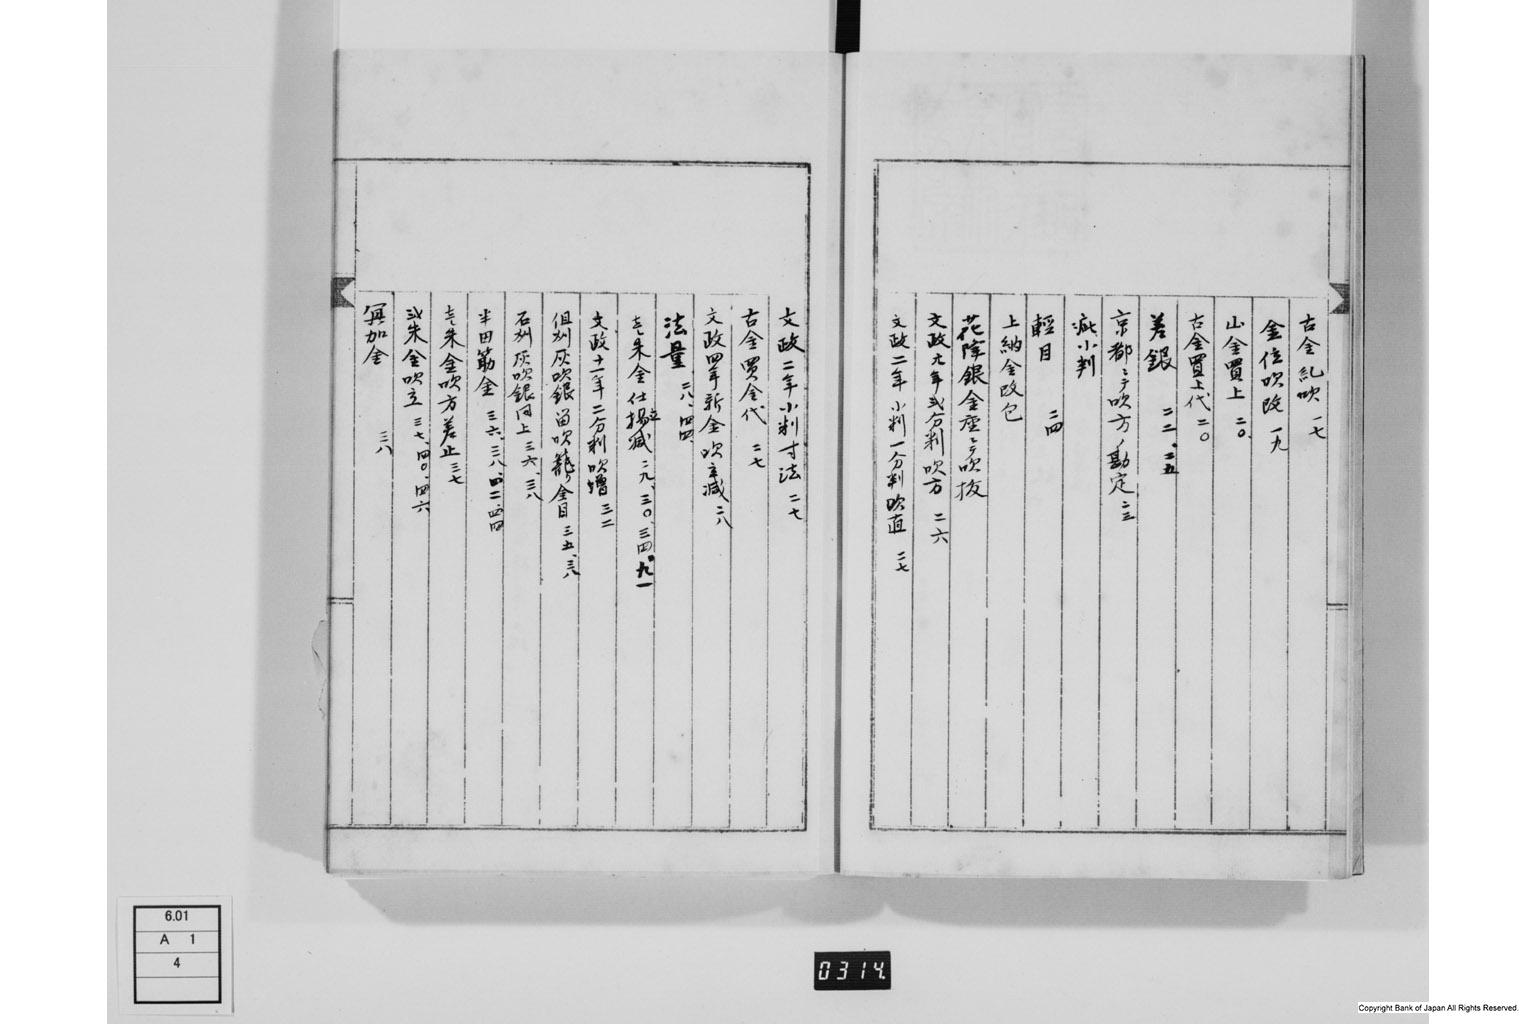 古金吹 一七
金位吹改 一九
山金買上 二〇
古金買上代 二〇
差銀 二二、二五
京都ニテ吹方ノ勘定 二三
疵小判
輕目 二四
上納金改包
花降銀金座ニテ吹抜
文政九年弐分判吹方 二六
文政二年小判一分判吹直 二七
文政二年小判寸法 二七
古金買金代 二七
文政四年新金吹立減 二八
法量 二八、四四
壱朱金仕揚立減 二九、三〇、三四、九一
文政十一年二分判吹増 三二
但州灰吹銀留吹 金目 三五、三八
石州灰吹銀同上 三六、三八
半田筋金 三六、三八、四二、四四
壱朱金吹方差止 三七
弐朱金吹立 三七、四〇、四六
冥加金 三八
6.01
A 1
4
0314
Copyright Bank of Japan All Rights Reserved.